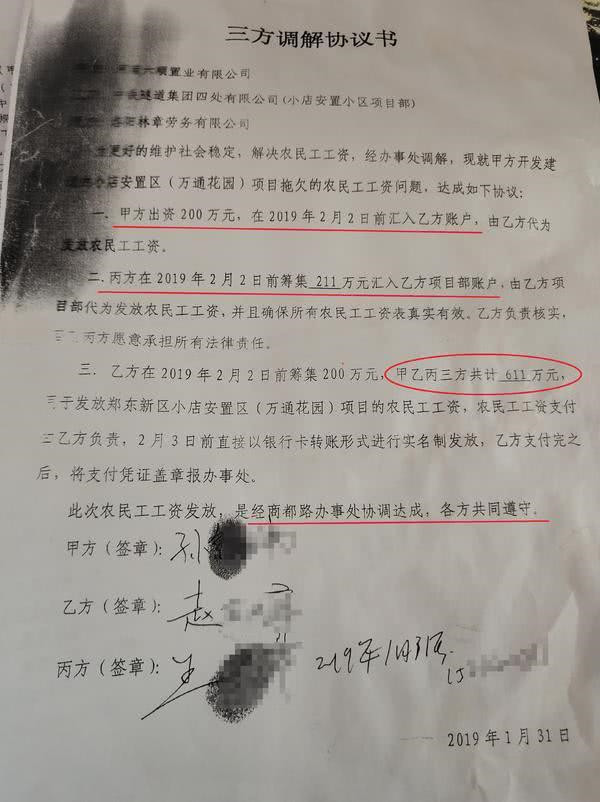 三方调解协议书
六顺置业有限公司
隧道集团四处有限公司(小店安置小区项目部)
林章劳务有限公司
更好的维护社会稳定，解决农民工工资，经办事处调解，现就甲方开发建
小店安置区（万通花园）项目拖欠的农民工工资问题，达成如下协议：
一、甲方出资 200 万元，在 2019 年 2 月 2 日前汇入乙方账户，由乙方代为
发放农民工工资。
二.丙方在 2019 年 2 月 2 日前筹集 211 万元汇入乙方项目部账户，由乙方项
目部代为发放农民工工资，并且确保所有农民工工资表真实有效。乙方负责核实，
丙方愿意承担所有法律责任。
三．乙方在 2019 年 2 月 2 日前筹集 200 万元，甲乙丙三方共计 611 万元，
于发放郑东新区小店安置区（万通花园）项目的农民工工资，农民工工资支付
乙方负责，2 月 3 日前直接以银行卡转账形式进行实名制发放，乙方支付完之
后，将支付凭证盖章报办事处。
此次农民工工资发放，是经商都路办事处协调达成，各方共同遵守。
甲方（签章）：孙
乙方（签章）：赵
丙方（签章）： 2019年1月31号
2019 年 1 月 31 日